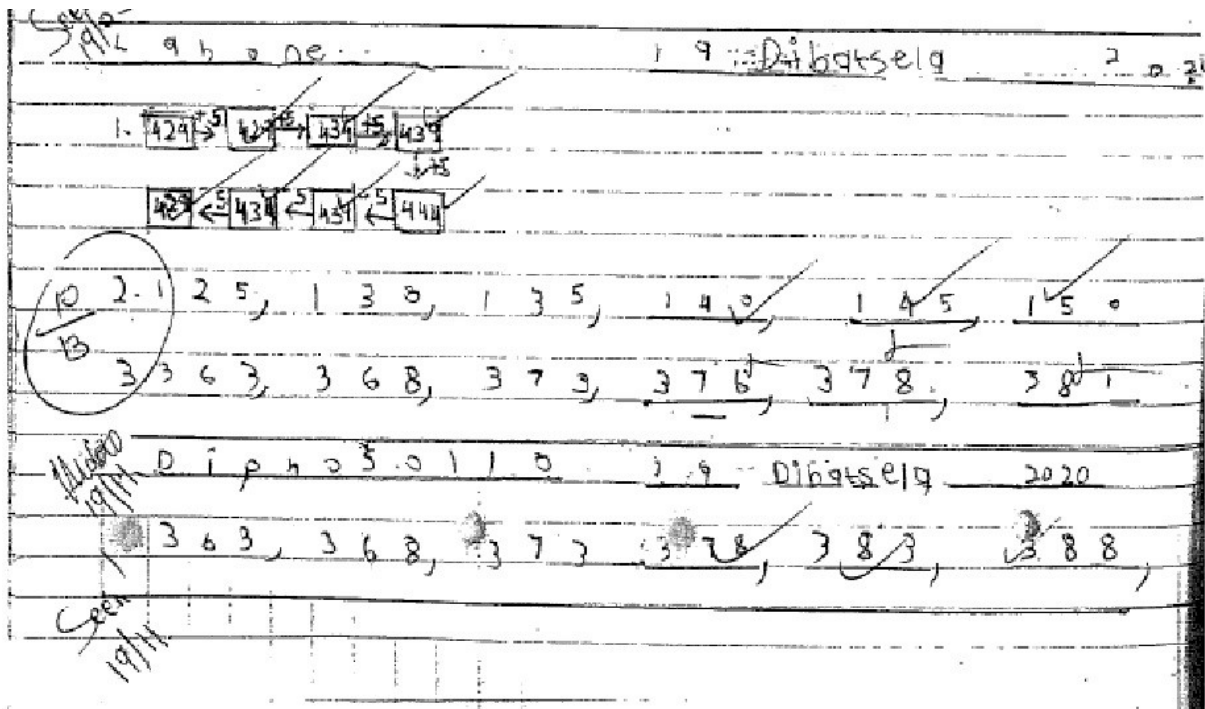 Seen
19/11 Lahone 19 Dibatsela 2020
1. 424 +5 429 +5 434 +5 439
+5
429 5 434 5 439 5 444
10/13
2. 125, 130, 135, 140, 145, 150
3 363, 368, 373, 376, 378, 381
19/11 Diphosollo 19 Dibatsela 2020
363, 368, 373, 378, 383, 388,
Seen
19/11